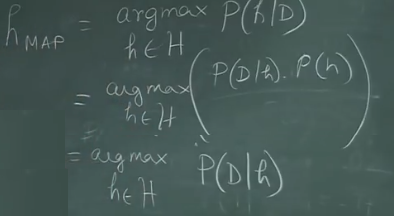 h MAP = argmax P(h/D)
h ∈ H
= argmax (P(D/h). P(h))
h ∈ H
= argmax P(D|h)
h ∈ H